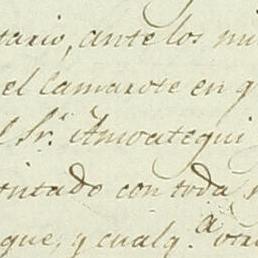 tario, ante los mi
el camarote en q
l Sr. Amoategui
ontado con toda
que, y cualq.ª otra